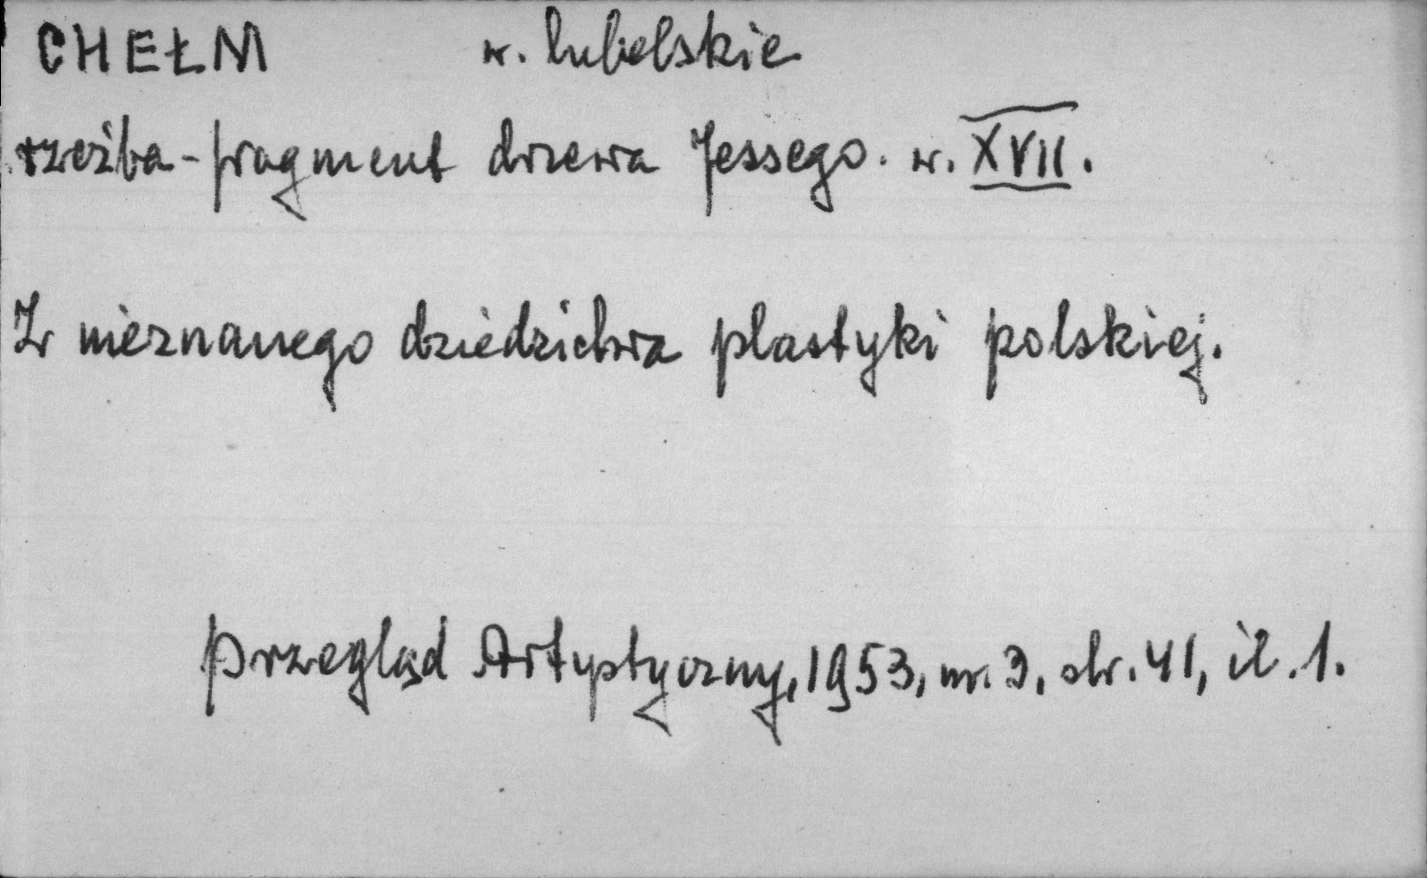 CHEŁM w. lubelskie
rzeźba-fragment drzewa Jessego. w. XVII.
Z nieznanego dziedzictwa plastyki polskiej.
Przegląd Artystyczny, 1953, nr. 3, str. 41, il. 1.